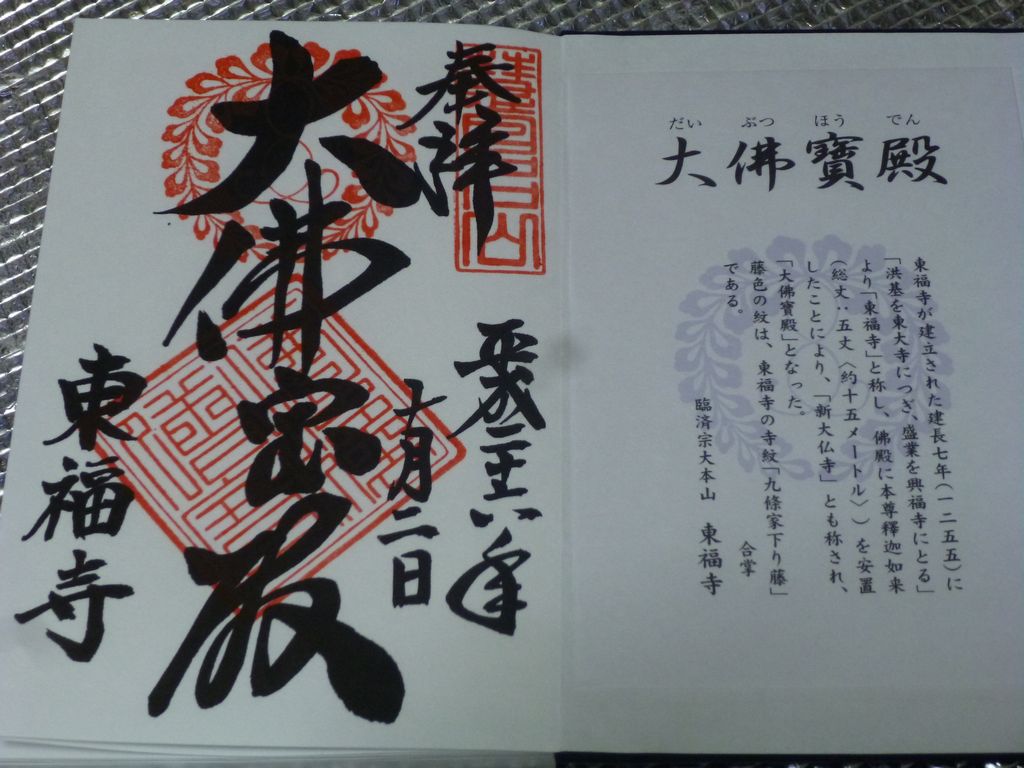 だい ぶつ ほう でん
大佛寶殿
東福寺が建立された建長七年(一二五五)に
「洪基を東大寺につぎ、盛業を興福寺にとる」
より「東福寺」と称し、佛殿に本尊釋迦如来
(総丈:五丈〈約十五メートル〉)を安置
したことにより、「新大仏寺」とも称され、
「大佛寶殿」となった。
藤色の紋は、東福寺の寺紋「九條家下り藤」
である。
合掌
臨済宗大本山 東福寺
奉拝
平成二十六年
十月二日
大佛宝殿
東福寺